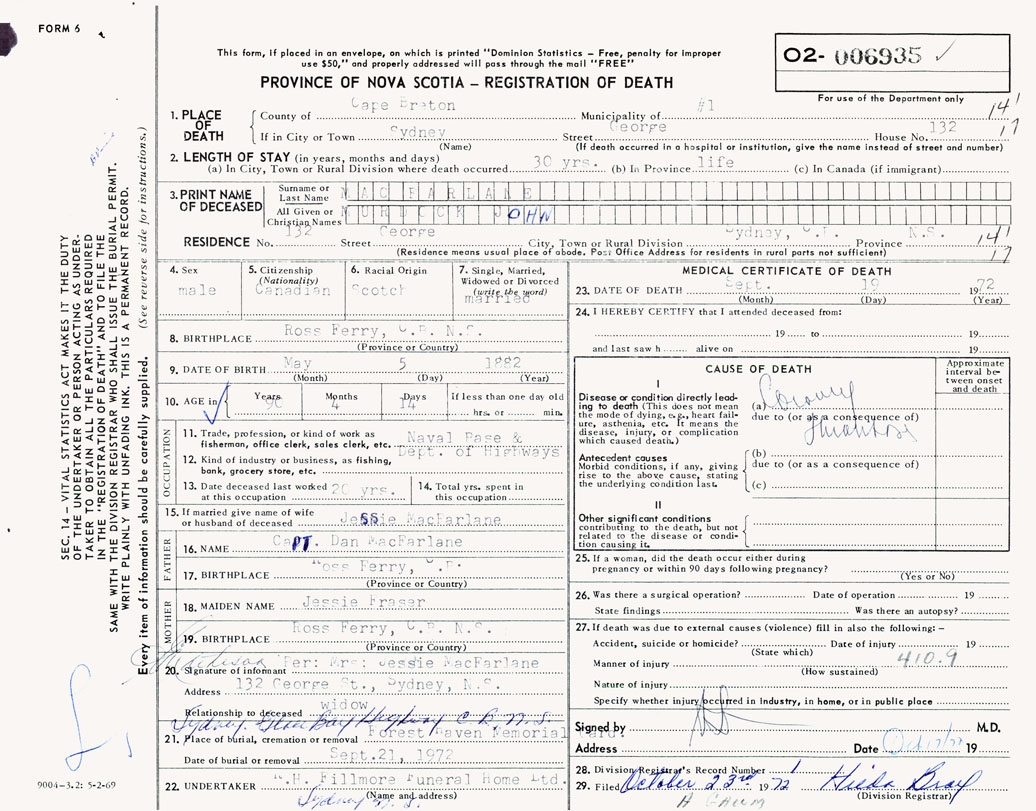 FORM 6
This form, if placed in an envelope, on which is printed "Dominion Statistics — Free, penalty for improper
use $50," and properly addressed will pass through the mail "FREE"
PROVINCE OF NOVA SCOTIA — REGISTRATION OF DEATH
O2- 006935 ✓
For use of the Department only
1. PLACE OF DEATH
County of Cape Breton Municipality of #1
14' 17
If in City or Town Sydney Street George House No. 132
(Name) (If death occurred in a hospital or institution, give the name instead of street and number)
2. LENGTH OF STAY (in years, months and days)
(a) In City, Town or Rural Division where death occurred 30 yrs. (b) In Province life (c) In Canada (if immigrant)
3. PRINT NAME OF DECEASED
Surname or Last Name MACFARLANE
All Given or Christian Names MURDOCK JOHN
RESIDENCE No. 132 Street George City, Town or Rural Division Sydney, C.B. Province N.S.
14' 17
(Residence means usual place of abode. Post Office Address for residents in rural parts not sufficient)
4. Sex
male
5. Citizenship (Nationality)
Canadian
6. Racial Origin
Scotch
7. Single, Married, Widowed or Divorced (write the word)
married
8. BIRTHPLACE Ross Ferry, C.B. N.S.
(Province or Country)
9. DATE OF BIRTH May 5 1882
(Month) (Day) (Year)
10. AGE in Years Months Days If less than one day old
90 4 14 hrs. or min.
OCCUPATION
11. Trade, profession, or kind of work as fisherman, office clerk, sales clerk, etc. Naval Base &
Dept. of Highways
12. Kind of industry or business, as fishing, bank, grocery store, etc.
13. Date deceased last worked at this occupation 20 yrs.
14. Total yrs. spent in this occupation
15. If married give name of wife or husband of deceased Jessie MacFarlane
FATHER
16. NAME CaPT. Dan MacFarlane
17. BIRTHPLACE Ross Ferry, C.B.
(Province or Country)
MOTHER
18. MAIDEN NAME Jessie Fraser
19. BIRTHPLACE Ross Ferry, C.B. N.S.
(Province or Country)
20. Signature of informant Per: Mrs. Jessie MacFarlane
Address 132 George St., Sydney, N.S.
Relationship to deceased widow
Sydney. Glace Bay Highway C B N.S.
21. Place of burial, cremation or removal Forest Haven Memorial Gard.
Date of burial or removal Sept.21, 1972
22. UNDERTAKER W.H. Fillmore Funeral Home Ltd.
(Name and address)
Sydney N. S.
MEDICAL CERTIFICATE OF DEATH
23. DATE OF DEATH Sept. 19 1972
(Month) (Day) (Year)
24. I HEREBY CERTIFY that I attended deceased from:
19 to 19
and last saw h alive on 19
CAUSE OF DEATH
Approximate interval between onset and death
I
Disease or condition directly leading to death (This does not mean the mode of dying, e.g., heart failure, asthenia, etc. It means the disease, injury, or complication which caused death.)
(a) Coronary
due to (or as a consequence of)
Thrombosis
Antecedent causes
Morbid conditions, if any, giving rise to the above cause, stating the underlying condition last.
(b)
due to (or as a consequence of)
(c)
II
Other significant conditions
contributing to the death, but not related to the disease or condition causing it.
25. If a woman, did the death occur either during
pregnancy or within 90 days following pregnancy?
(Yes or No)
26. Was there a surgical operation? Date of operation 19
State findings Was there an autopsy?
27. If death was due to external causes (violence) fill in also the following: —
Accident, suicide or homicide? Date of injury 19
(State which)
Manner of injury 410.9
(How sustained)
Nature of injury
Specify whether injury occurred in industry, in home, or in public place
Signed by M.D.
Address Date 19
28. Division Registrar's Record Number 1
29. Filed October 23rd 1972 Hilda Bray
(Division Registrar)
SEC. 14 — VITAL STATISTICS ACT MAKES IT THE DUTY
OF THE UNDERTAKER OR PERSON ACTING AS UNDER-
TAKER TO OBTAIN ALL THE PARTICULARS REQUIRED
IN THE "REGISTRATION OF DEATH" AND TO FILE THE
SAME WITH THE DIVISION REGISTRAR WHO SHALL ISSUE THE BURIAL PERMIT.
WRITE PLAINLY WITH UNFADING INK. THIS IS A PERMANENT RECORD.
Every item of information should be carefully supplied. (See reverse side for instructions.)
9004-3.2: 5-2-69